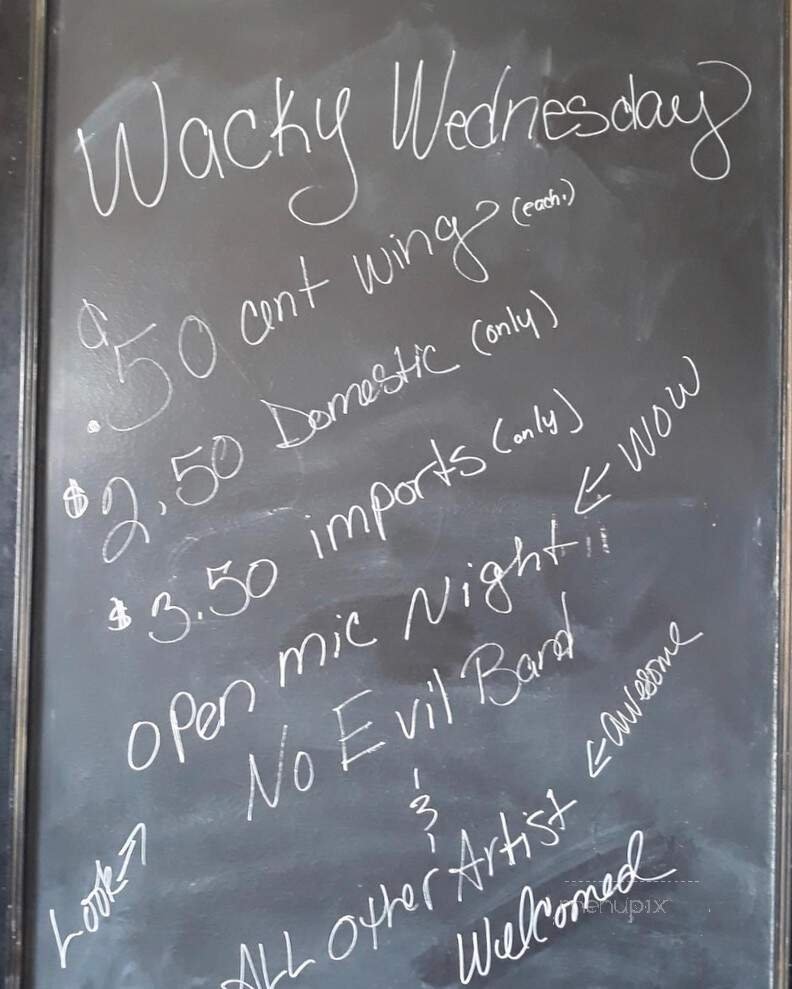 Wacky Wednesday
$.50 cent wings (each.)
$2.50 Domestic (only)
$3.50 imports (only)
OPen mic Night!! ← WOW
No Evil Band
&
Look → ALL Other Artist ← awesome
Welcomed
menupix